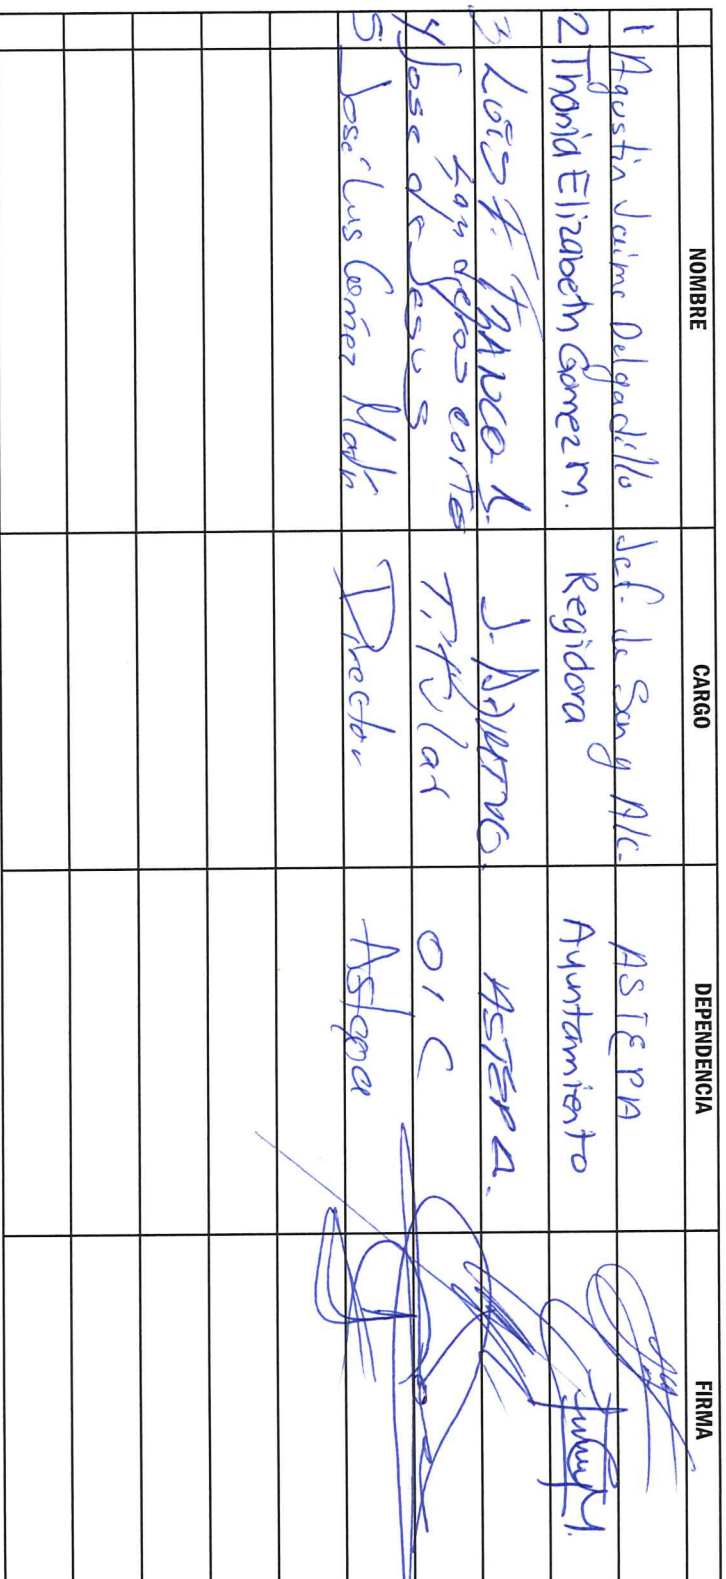 NOMBRE CARGO DEPENDENCIA FIRMA
1 Agustin Jaime Delgadillo Jef. de San y Alc. ASTEPA
2 Thania Elizabeth Gomez M. Regidora Ayuntamiento
3 Luis F. FRANCO L. J. ASTEPA.
4 Jose de Jesus San cortes Titular OIC
5 José Luis Gómez Director Astepa